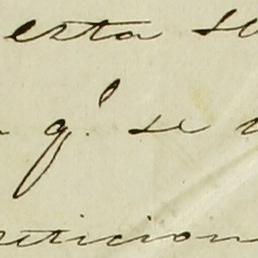 esta se
q.e se
eticion